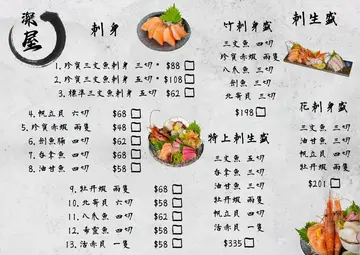 深屋
刺身
1. 珍賞三文魚刺身 三切 * $88
2. 珍賞三文魚刺身 五切 * $108
3. 標準三文魚刺身 五切 $62
4. 帆立貝 六切 $68
5. 珍賞赤蝦 兩隻 $48
6. 劍魚腩 四切 $68
7. 吞拿魚 四切 $68
8. 油甘魚 三切 $58
9. 牡丹蝦 兩隻 $68
10. 北寄貝 六切 $58
11. 八爪魚 四切 $62
12. 希靈魚 四切 $58
13. 活赤貝 一隻 $62
竹刺身盛
三文魚 四切
珍賞赤蝦 兩隻
八爪魚 三切
劍魚 三切
北寄貝 四切
$198
特上刺生盛
三文魚 五切
吞拿魚 三切
油甘魚 三切
牡丹蝦 兩隻
帆立貝 四切
活赤貝 一隻
$335
刺生盛
花刺身盛
三文魚 三切
油甘魚 三切
帆立貝 三切
牡丹蝦 兩隻
$201